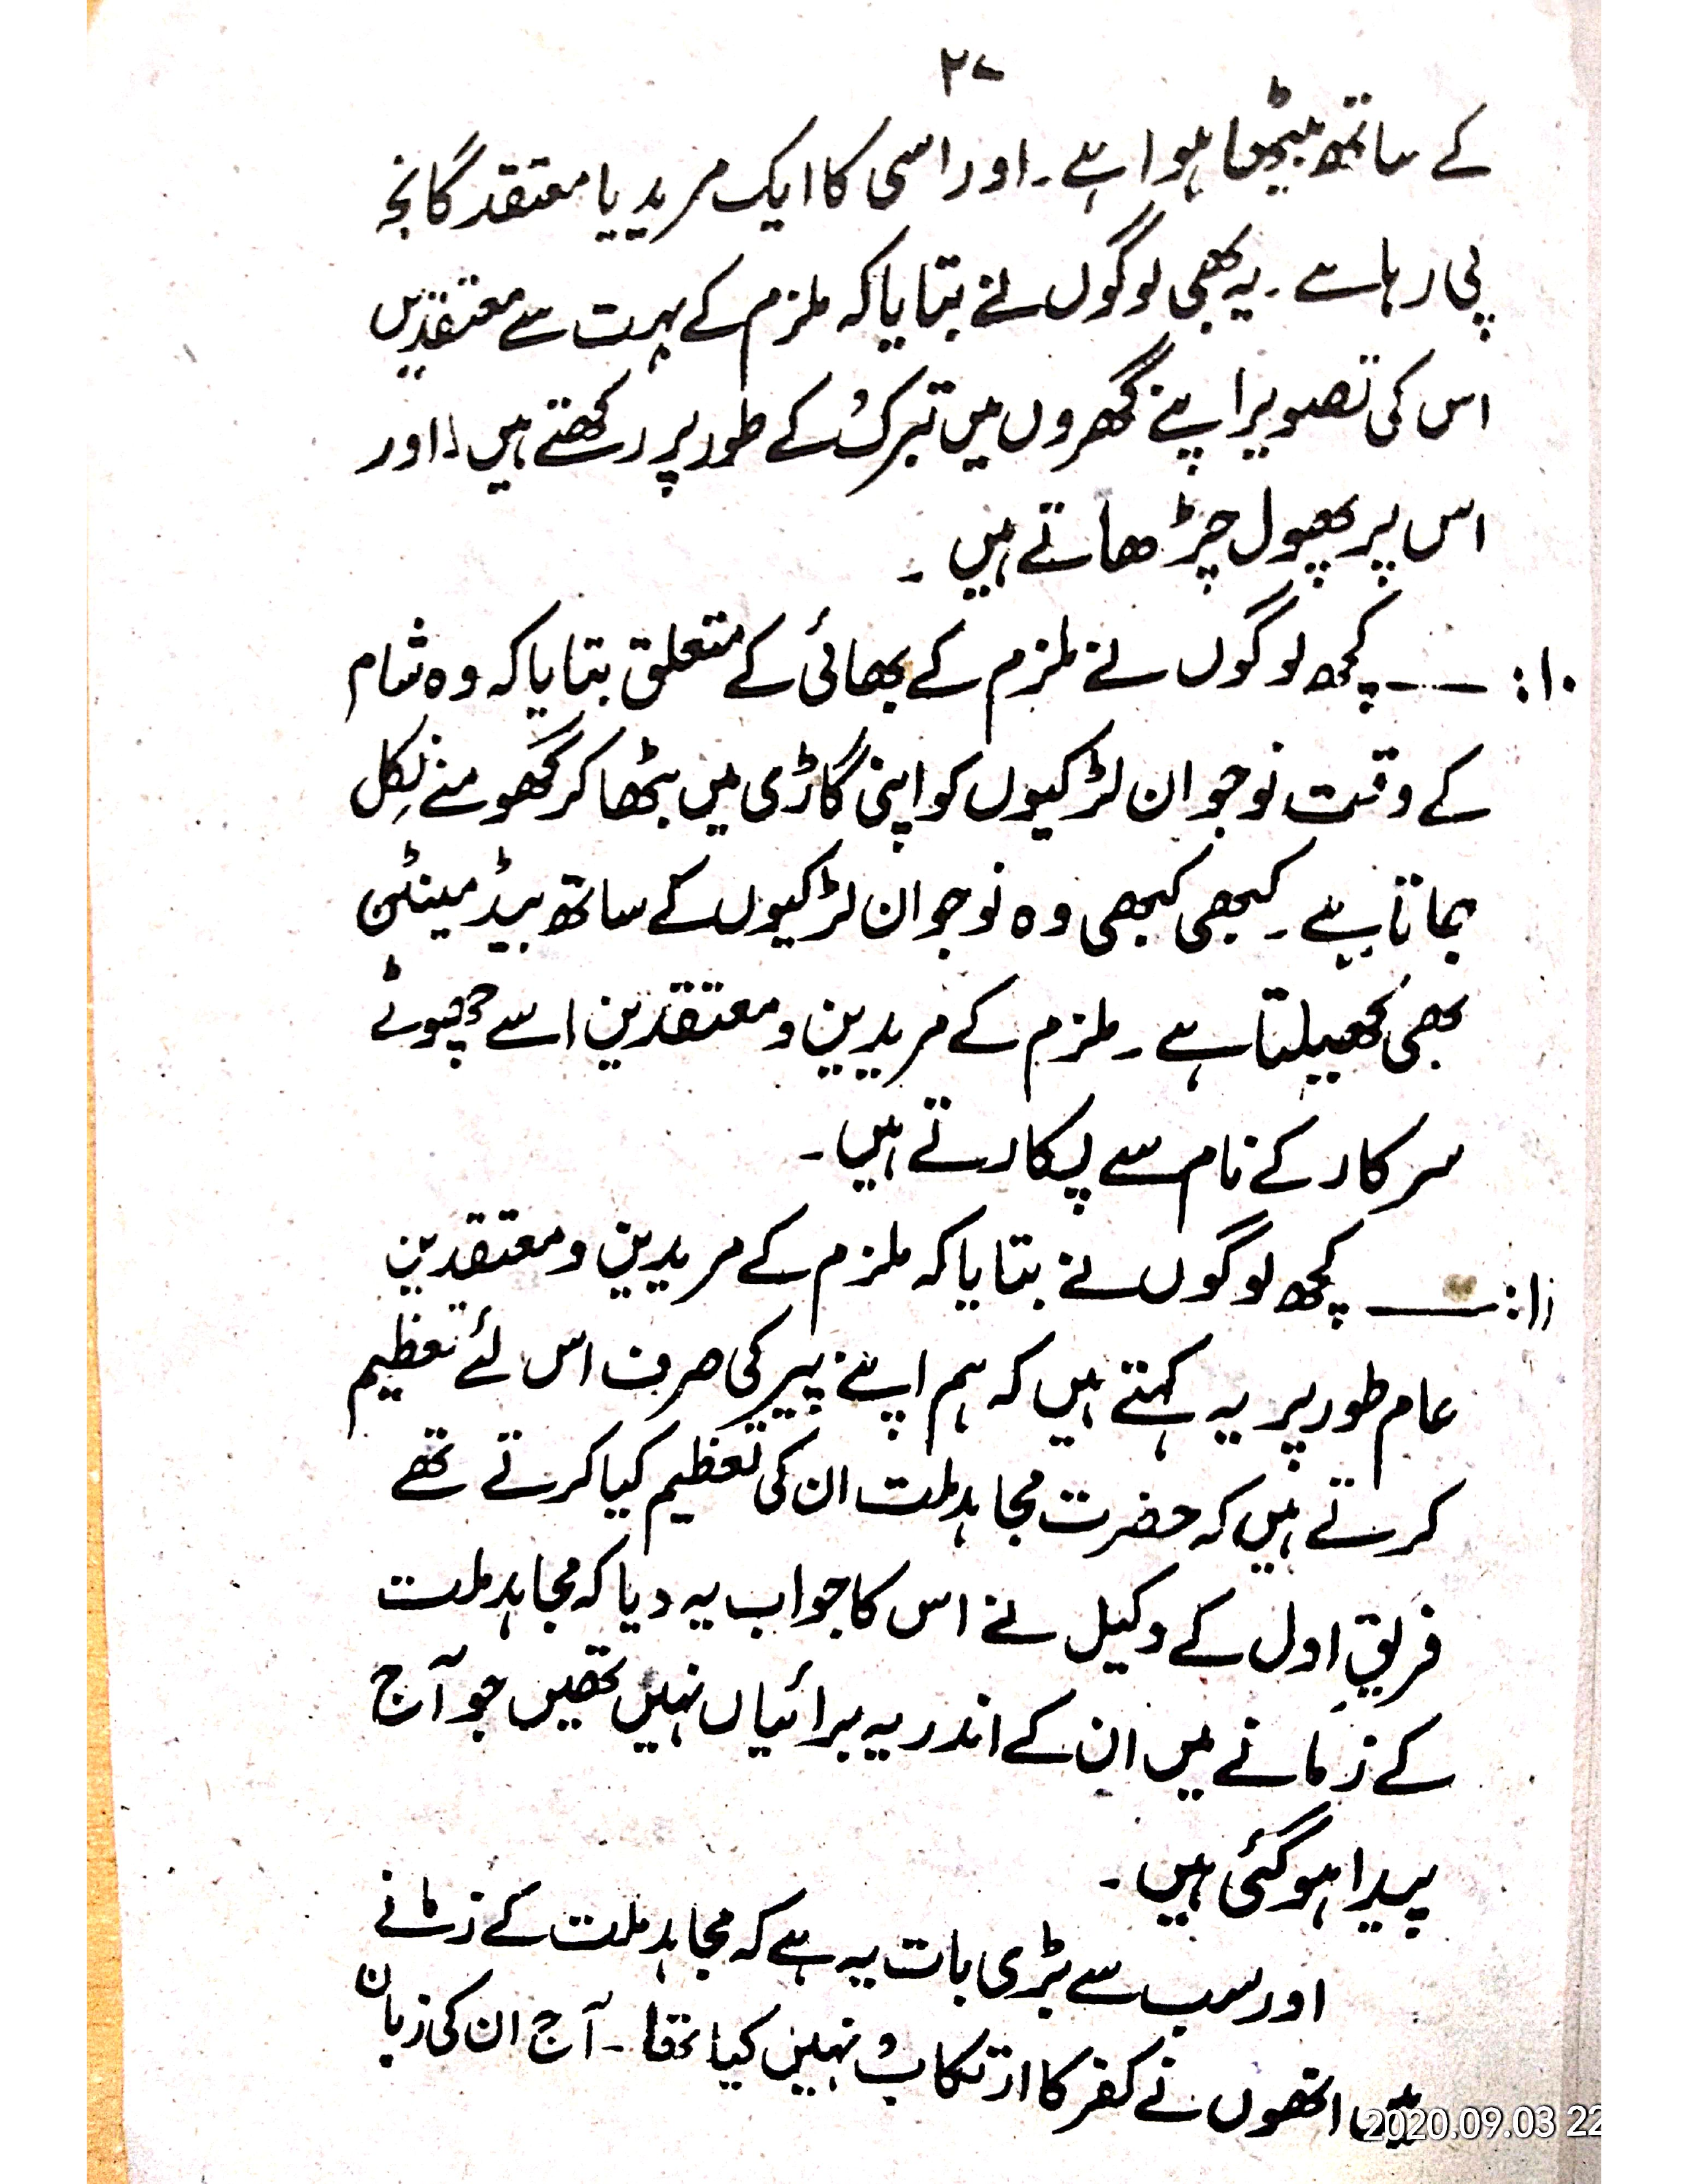 ۲۷
کے ساتھ بیٹھا ہوا ہے۔ اور اسی کا ایک مرید یا معتقد گانجہ
پی رہا ہے۔ یہ بھی لوگوں نے بتایا کہ ملزم کے بہت سے معتقدین
اس کی تصویر اپنے گھروں میں تبرک کے طور پر رکھتے ہیں، اور
اس پر پھول چڑھاتے ہیں۔
۱۰: ـــ کچھ لوگوں نے ملزم کے بھائی کے متعلق بتایا کہ وہ شام
کے وقت نوجوان لڑکیوں کو اپنی گاڑی میں بٹھا کر گھومنے نکل
جاتا ہے۔ کبھی کبھی وہ نوجوان لڑکیوں کے ساتھ بیڈ مینٹن
بھی کھیلتا ہے۔ ملزم کے مریدین و معتقدین اسے چھوٹے
سرکار کے نام سے پکارتے ہیں۔
۱۱: ـــ کچھ لوگوں نے بتایا کہ ملزم کے مریدین و معتقدین
عام طور پر یہ کہتے ہیں کہ ہم اپنے پیر کی صرف اس لئے تعظیم
کرتے ہیں کہ حضرت مجاہد ملت ان کی تعظیم کیا کرتے تھے
فریقِ اول کے وکیل نے اس کا جواب یہ دیا کہ مجاہد ملت
کے زمانے میں ان کے اندر یہ برائیاں نہیں تھیں جو آج
پیدا ہو گئی ہیں۔
اور سب سے بڑی بات یہ ہے کہ مجاہد ملت کے زمانے
میں انھوں نے کفر کا ارتکاب نہیں کیا تھا۔ آج ان کی زبان
2020.09.03 22